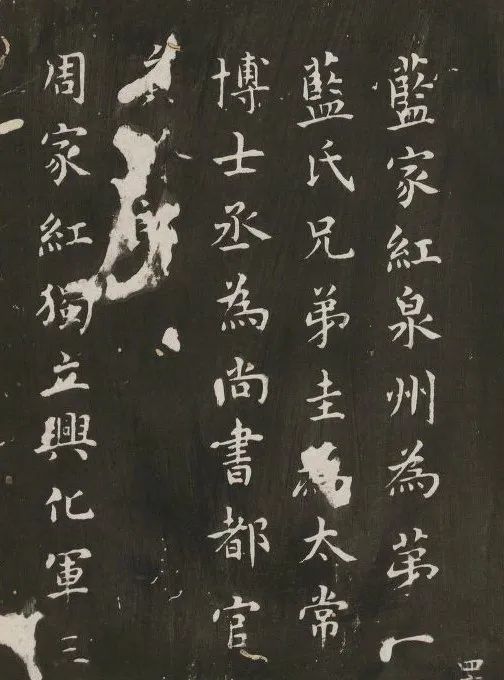 藍家紅泉州為第一
藍氏兄弟圭為太常
博士丞為尚書都官
周家紅獨立興化軍三